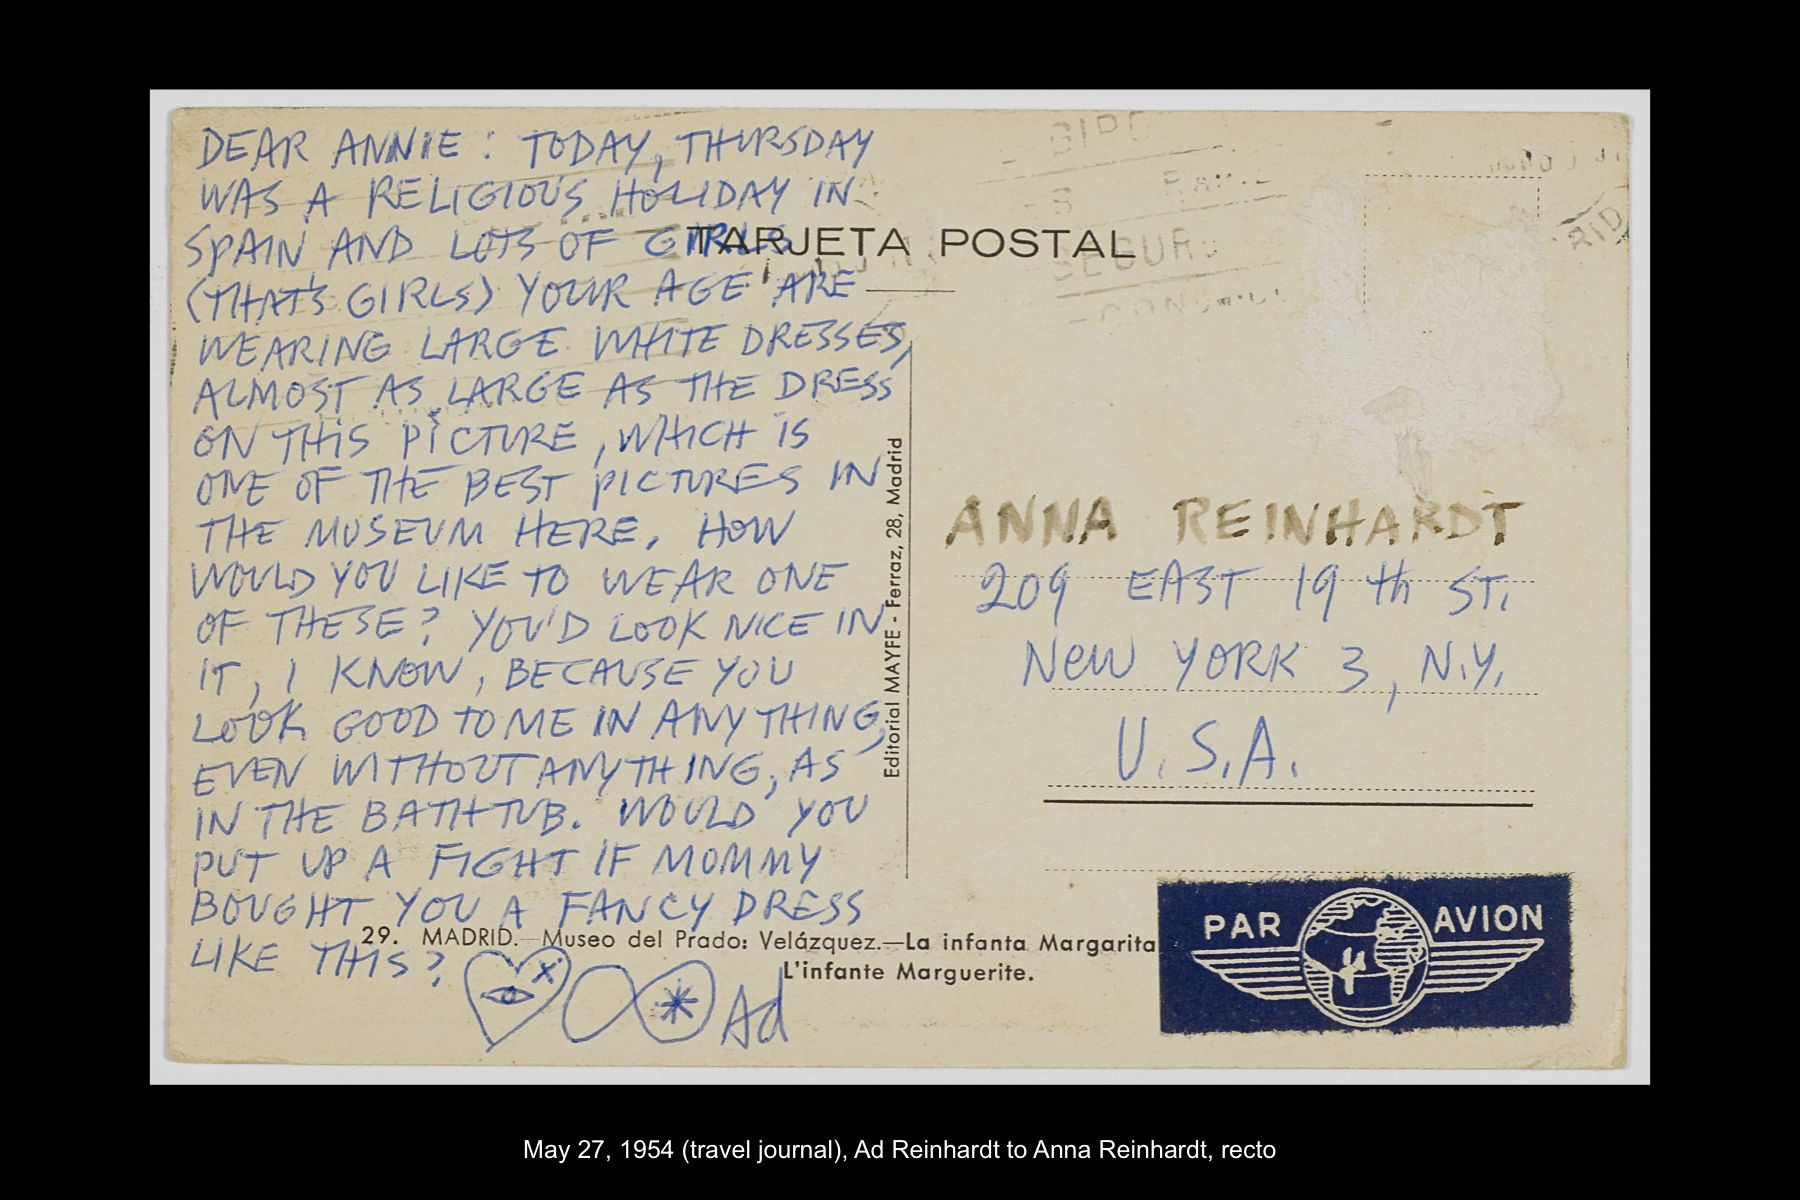 DEAR ANNIE: TODAY, THURSDAY
WAS A RELIGIOUS HOLIDAY IN
SPAIN AND LOTS OF GIRLS
(THAT'S GIRLS) YOUR AGE ARE
WEARING LARGE WHITE DRESSES,
ALMOST AS LARGE AS THE DRESS
ON THIS PICTURE, WHICH IS
ONE OF THE BEST PICTURES IN
THE MUSEUM HERE. HOW
WOULD YOU LIKE TO WEAR ONE
OF THESE? YOU'D LOOK NICE IN
IT, I KNOW, BECAUSE YOU
LOOK GOOD TO ME IN ANYTHING,
EVEN WITHOUT ANYTHING, AS
IN THE BATHTUB. WOULD YOU
PUT UP A FIGHT IF MOMMY
BOUGHT YOU A FANCY DRESS
LIKE THIS?
Ad
TARJETA POSTAL
Editorial MAYFE - Ferraz, 28, Madrid
ANNA REINHARDT
209 EAST 19th ST.
NEW YORK 3, N.Y.
U.S.A.
29. MADRID.—Museo del Prado: Velázquez.—La infanta Margarita
L'infante Marguerite.
PAR AVION
May 27, 1954 (travel journal), Ad Reinhardt to Anna Reinhardt, recto